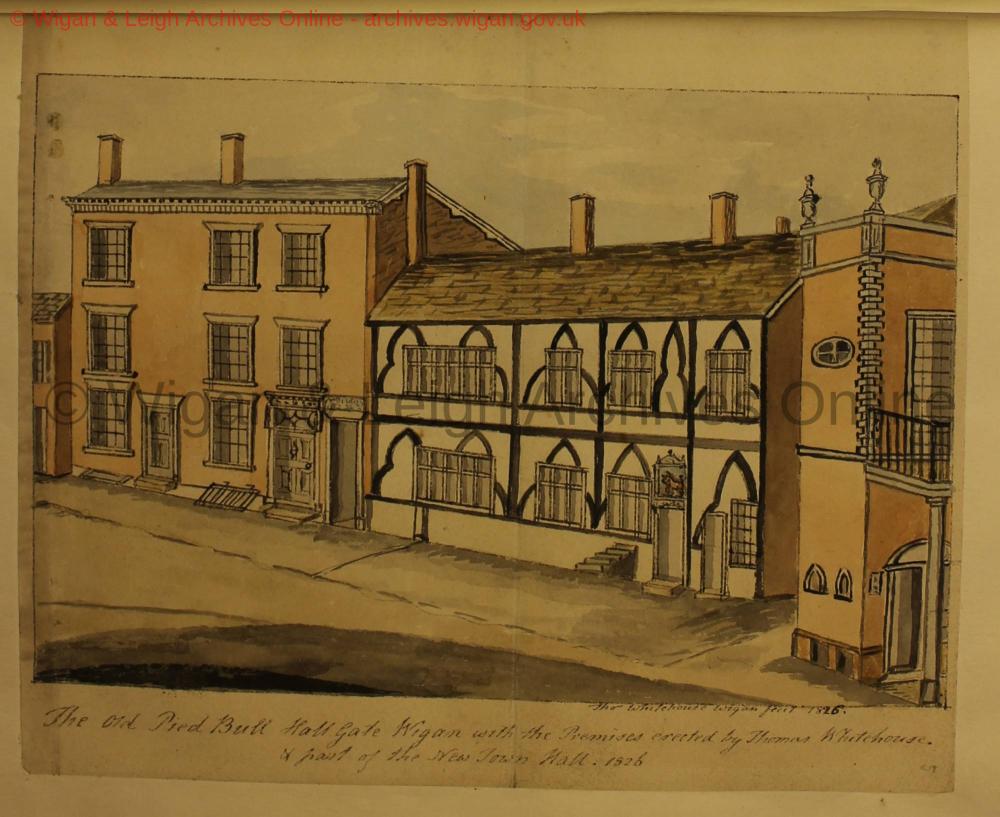 © Wigan & Leigh Archives Online - archives.wigan.gov.uk
© Wigan & Leigh Archives Online
Tho Whitehouse Wigan fecit 1826.
The Old Pied Bull Hall Gate Wigan with the Premises erected by Thomas Whitehouse.
& part of the New Town Hall. 1826